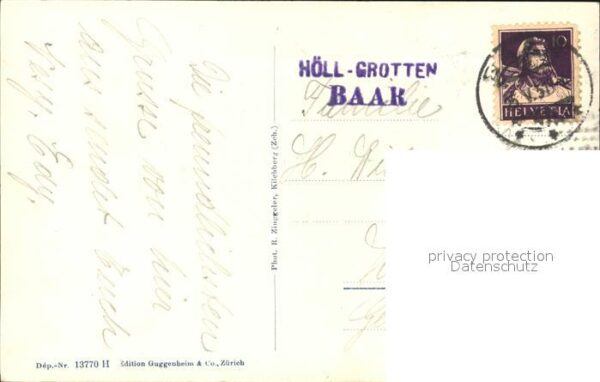 Die freundlichsten
Grüsse von hier
aus sendet Euch
Edy.
HÖLL-GROTTEN
BAAR
Familie
H.
10
HELVETIA
Phot. R. Zinggeler, Kilchberg (Zch.)
privacy protection
Datenschutz
Dép.-Nr. 13770 H Edition Guggenheim & Co., Zürich